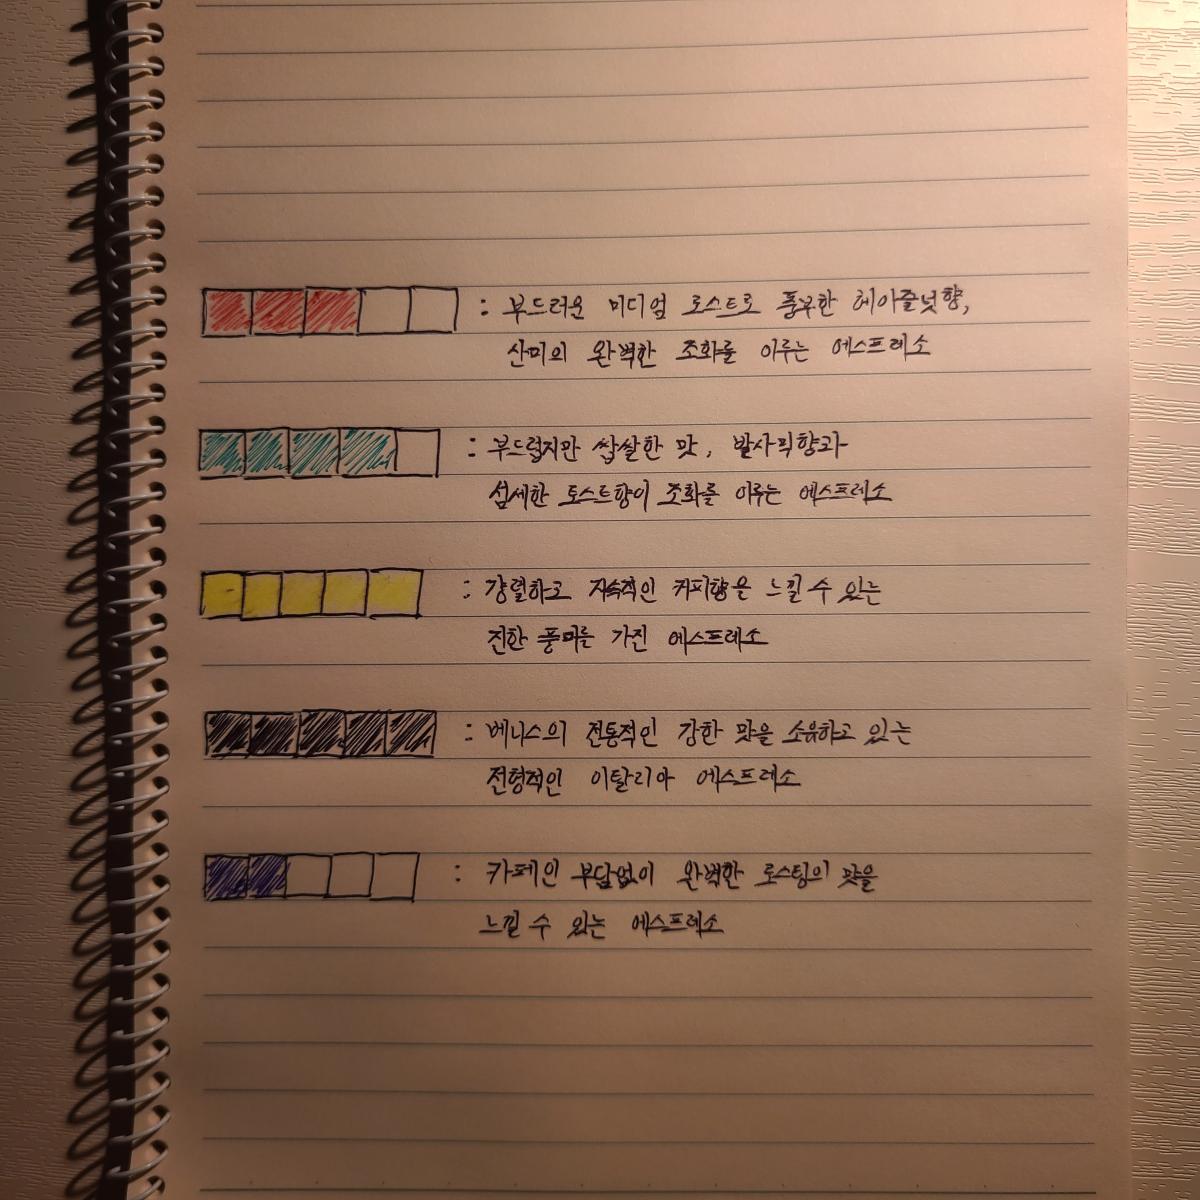 : 부드러운 미디엄 로스트로 풍부한 헤아즐넛향,
산미의 완벽한 조화를 이루는 에스프레소
: 부드럽지만 쌉쌀한 맛, 발사믹향과
섬세한 토스트향이 조화를 이루는 에스프레소
: 강렬하고 지속적인 커피향을 느낄 수 있는
진한 풍미를 가진 에스프레소
: 베니스의 전통적인 강한 맛을 소유하고 있는
전형적인 이탈리아 에스프레소
: 카페인 부담없이 완벽한 로스팅의 맛을
느낄 수 있는 에스프레소